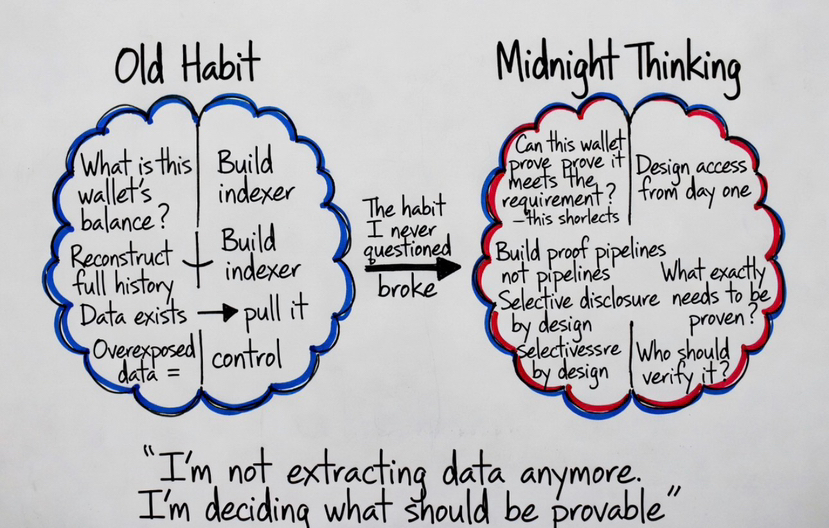 Old Habit
What is this
wallet's
balance?
Build
indexer
Reconstruct
full history
Build
indexer
Data exists → pull it
Overexposed
data =
control
The habit
I never
questioned
broke
Midnight Thinking
Can this wallet
prove prove it
meets the
requirement?
–this shorlects
Design access
from day one
Build proof pipelines
not pipelines
Selective disclosure
by design
What exactly
needs to be
proven?
Selectivessre
by design
Who should
verify it?
"I'm not extracting data anymore.
I'm deciding what should be provable"